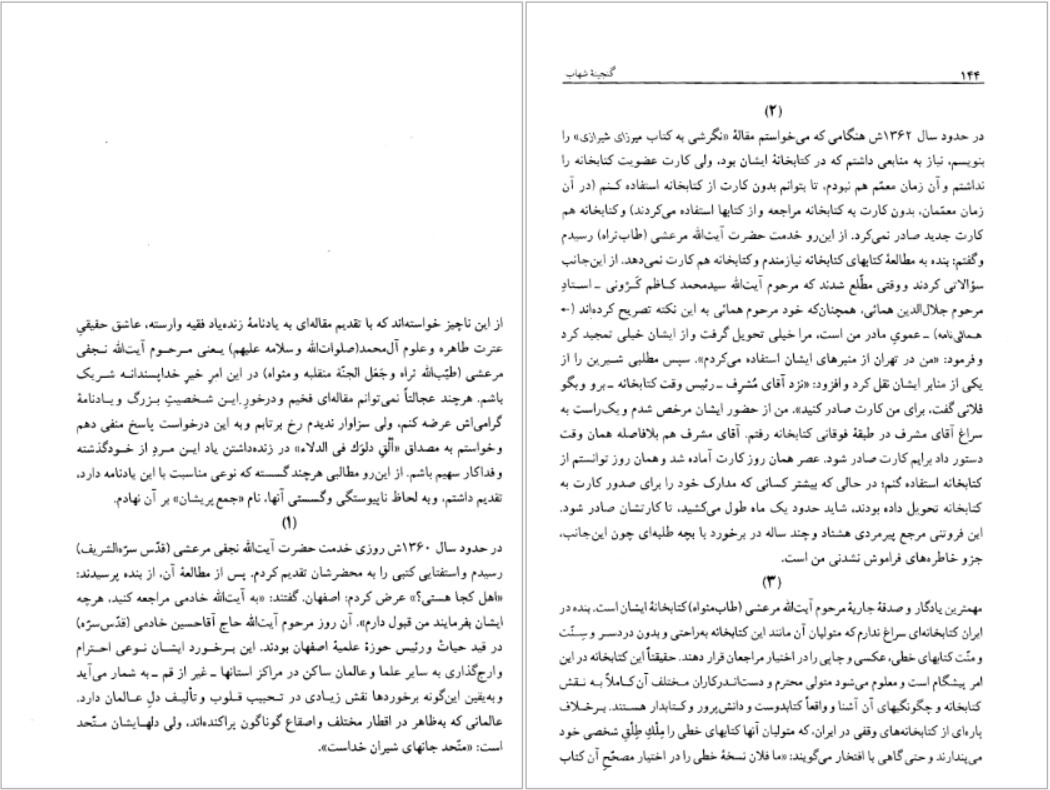 از این ناچیز خواسته‌اند که با تقدیم مقاله‌ای به یادنامهٔ زنده‌یاد فقیه وارسته، عاشق حقیقیِ
عترت طاهره و علوم آل‌محمد(صلوات‌الله و سلامه علیهم) یـعنی مـرحـوم آیت‌الله نـجفی
مرعشی (طیّب‌الله تراه و جَعَل الجنّة منقلبه و مثواه) در این امرِ خیرِ خداپسندانـه شـریک
باشم. هرچند عجالتاً نمی‌توانم مقاله‌ای فخیم و درخورِ ایـن شـخصیتِ بـزرگ و یـادنامهٔ
گرامی‌اش عرضه کنم، ولی سزاوار ندیدم رخ برتابم و به این درخواست پاسخ منفی دهم
و خواستم به مصداق «أَلْقِ دلوَك فی الدلاء» در زنده‌داشتن یاد ایـن مـردِ از خـودگذشته
و فداکار سهیم باشم. از این‌رو مطالبی هرچند گسسته که نوعی مناسبت با این یادنامه دارد،
تقدیم داشتم، و به لحاظ ناپیوستگی و گسستی آنها، نام «جمع پریشان» بر آن نهادم.
(۱)
در حدود سال ۱۳۶۰ش روزی خدمت حضرت آیت‌الله نجفی مرعشی (قدّس سرّه‌الشریف)
رسیدم و استفتایی کتبی را به محضرشان تقدیم کردم. پس از مطالعهٔ آن، از بنده پرسیدند:
«اهل کجا هستی؟» عرض کردم: اصفهان. گفتند: «به آیت‌الله خادمی مراجعه کنید، هرچه
ایشان بفرمایند من قبول دارم». آن روز مرحوم آیت‌الله حاج آقاحسین خادمی (قدّس‌سرّه)
در قید حیاتْ و رئیس حوزهٔ علمیهٔ اصفهان بودند. این بـرخورد ایشـان نـوعی احـترام
و ارج‌گذاری به سایر علما و عالمان ساکن در مراکز استانها ـ غیر از قم ـ به شمار می‌آید
و به‌یقین این‌گونه برخوردها نقش زیادی در تـحبیب قـلوب و تألیـف دلِ عـالمان دارد.
عالمانی که به‌ظاهر در اقطار مختلف و اصقاع گوناگون پراکنده‌اند، ولی دلهـایشان مـتّحد
است: «متّحد جانهای شیران خداست».
۱۴۴
گنجینهٔ شهاب
(۲)
در حدود سال ۱۳۶۲ش هنگامی که می‌خواستم مقالهٔ «نگرشی به کتاب میرزای شیرازی» را
بنویسم، نیاز به منابعی داشتم که در کتابخانهٔ ایشان بود، ولی کارت عضویت کتابخانه را
نداشتم و آن زمان معمّم هم نبودم، تا بتوانم بدون کارت از کتابخانه استفاده کـنم (در آن
زمان معمّمان، بدون کارت به کتابخانه مراجعه و از کتابها استفاده می‌کردند) و کتابخانه هم
کارت جدید صادر نمی‌کرد. از این‌رو خدمت حضرت آیت‌الله مرعشی (طاب‌تراه) رسیدم
و گفتم: بنده به مطالعهٔ کتابهای کتابخانه نیازمندم و کتابخانه هم کارت نمی‌دهد. از این‌جانب
سؤالاتی کردند و وقتی مطّلع شدند که مرحوم آیت‌الله سیدمحمد کـاظم کَـرْوَنی ـ اسـتادِ
مرحوم جلال‌الدین همائی، همچنان‌که خود مرحوم همائی به این نکته تصریح کرده‌اند (←
همائی‌نامه) ـ عمویِ مادر من است، مرا خیلی تحویل گرفت و از ایشان خیلی تمجید کرد
و فرمود: «من در تهران از منبرهای ایشان استفاده می‌کردم». سپس مطلبی شـیرین را از
یکی از منابر ایشان نقل کرد و افزود: «نزد آقای مُشرِف ـ رئیس وقت کتابخانه ـ برو و بگو
فلانی گفت، برای من کارت صادر کنید». من از حضور ایشان مرخص شدم و یک‌راست به
سراغ آقای مشرف در طبقهٔ فوقانی کتابخانه رفتم. آقای مشرف هم بلافاصله همان وقت
دستور داد برایم کارت صادر شود. عصر همان روز کارت آماده شد و همان روز توانستم از
کتابخانه استفاده کنم؛ در حالی که بیشتر کسانی که مدارک خود را برای صدور کارت به
کتابخانه تحویل داده بودند، شاید حدود یک ماه طول می‌کشید، تا کارتشان صادر شود.
این فروتنی مرجع پیرمردی هشتاد و چند ساله در برخورد با بچه طلبه‌ای چون این‌جانب،
جزو خاطره‌های فراموش نشدنی من است.
(۳)
مهمترین یادگار و صدقهٔ جاریهٔ مرحوم آیت‌الله مرعشی (طاب‌مثواه) کتابخانهٔ ایشان است. بنده در
ایران کتابخانه‌ای سراغ ندارم که متولیان آن مانند این کتابخانه به‌راحتی و بدون دردسر و سِنّت
و منّت کتابهای خطی، عکسی و چاپی را در اختیار مراجعان قرار دهند. حقیقتاً این کتابخانه در این
امر پیشگام است و معلوم می‌شود متولی محترم و دست‌اندرکاران مختلف آن کـاملاً بـه نـقش
کتابخانه و چگونگیهای آن آشنا و واقعاً کتابدوست و دانش‌پرور و کـتابدار هسـتند. بـرخـلاف
پاره‌ای از کتابخانه‌های وقفی در ایران، که متولیان آنها کتابهای خطی را مِلْکِ طِلْقِ شخصی خود
می‌پندارند و حتی گاهی با افتخار می‌گویند: «ما فلان نسخهٔ خطی را در اختیار مصحّحِ آن کتاب